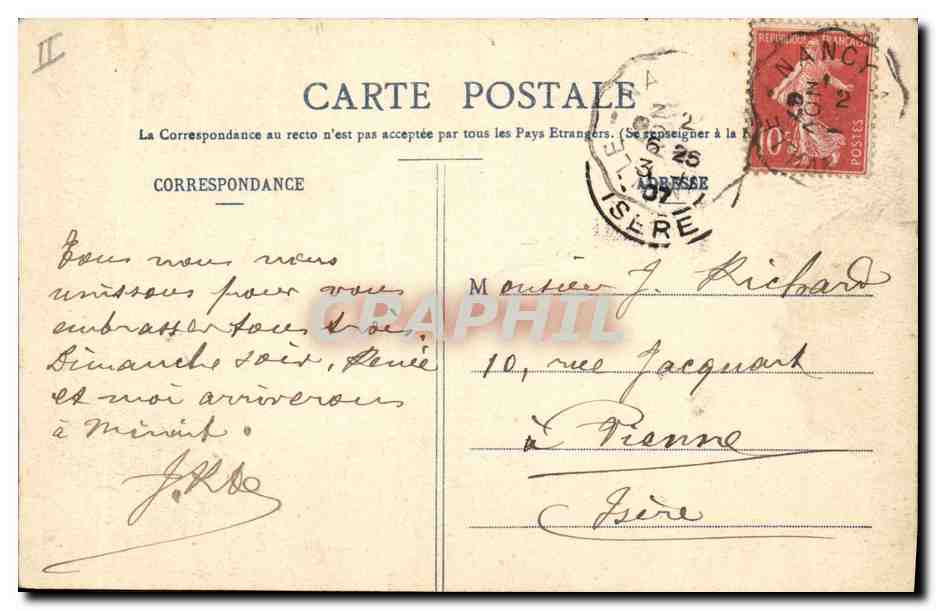 II
CARTE POSTALE
La Correspondance au recto n'est pas acceptée par tous les Pays Etrangers. (Se renseigner à la
CORRESPONDANCE
ADRESSE
REPUBLIQUE FRANÇAISE
10
POSTES
NANCY
2
25
3
07
ISÈRE
Tous nous nous
unissons pour vous
embrasser tous trois.
Dimanche soir, Renée
et moi arriverons
à minuit.
Monsieur J. Richard
10, rue Jacquart
à Vienne
Isère
CRAPHIL